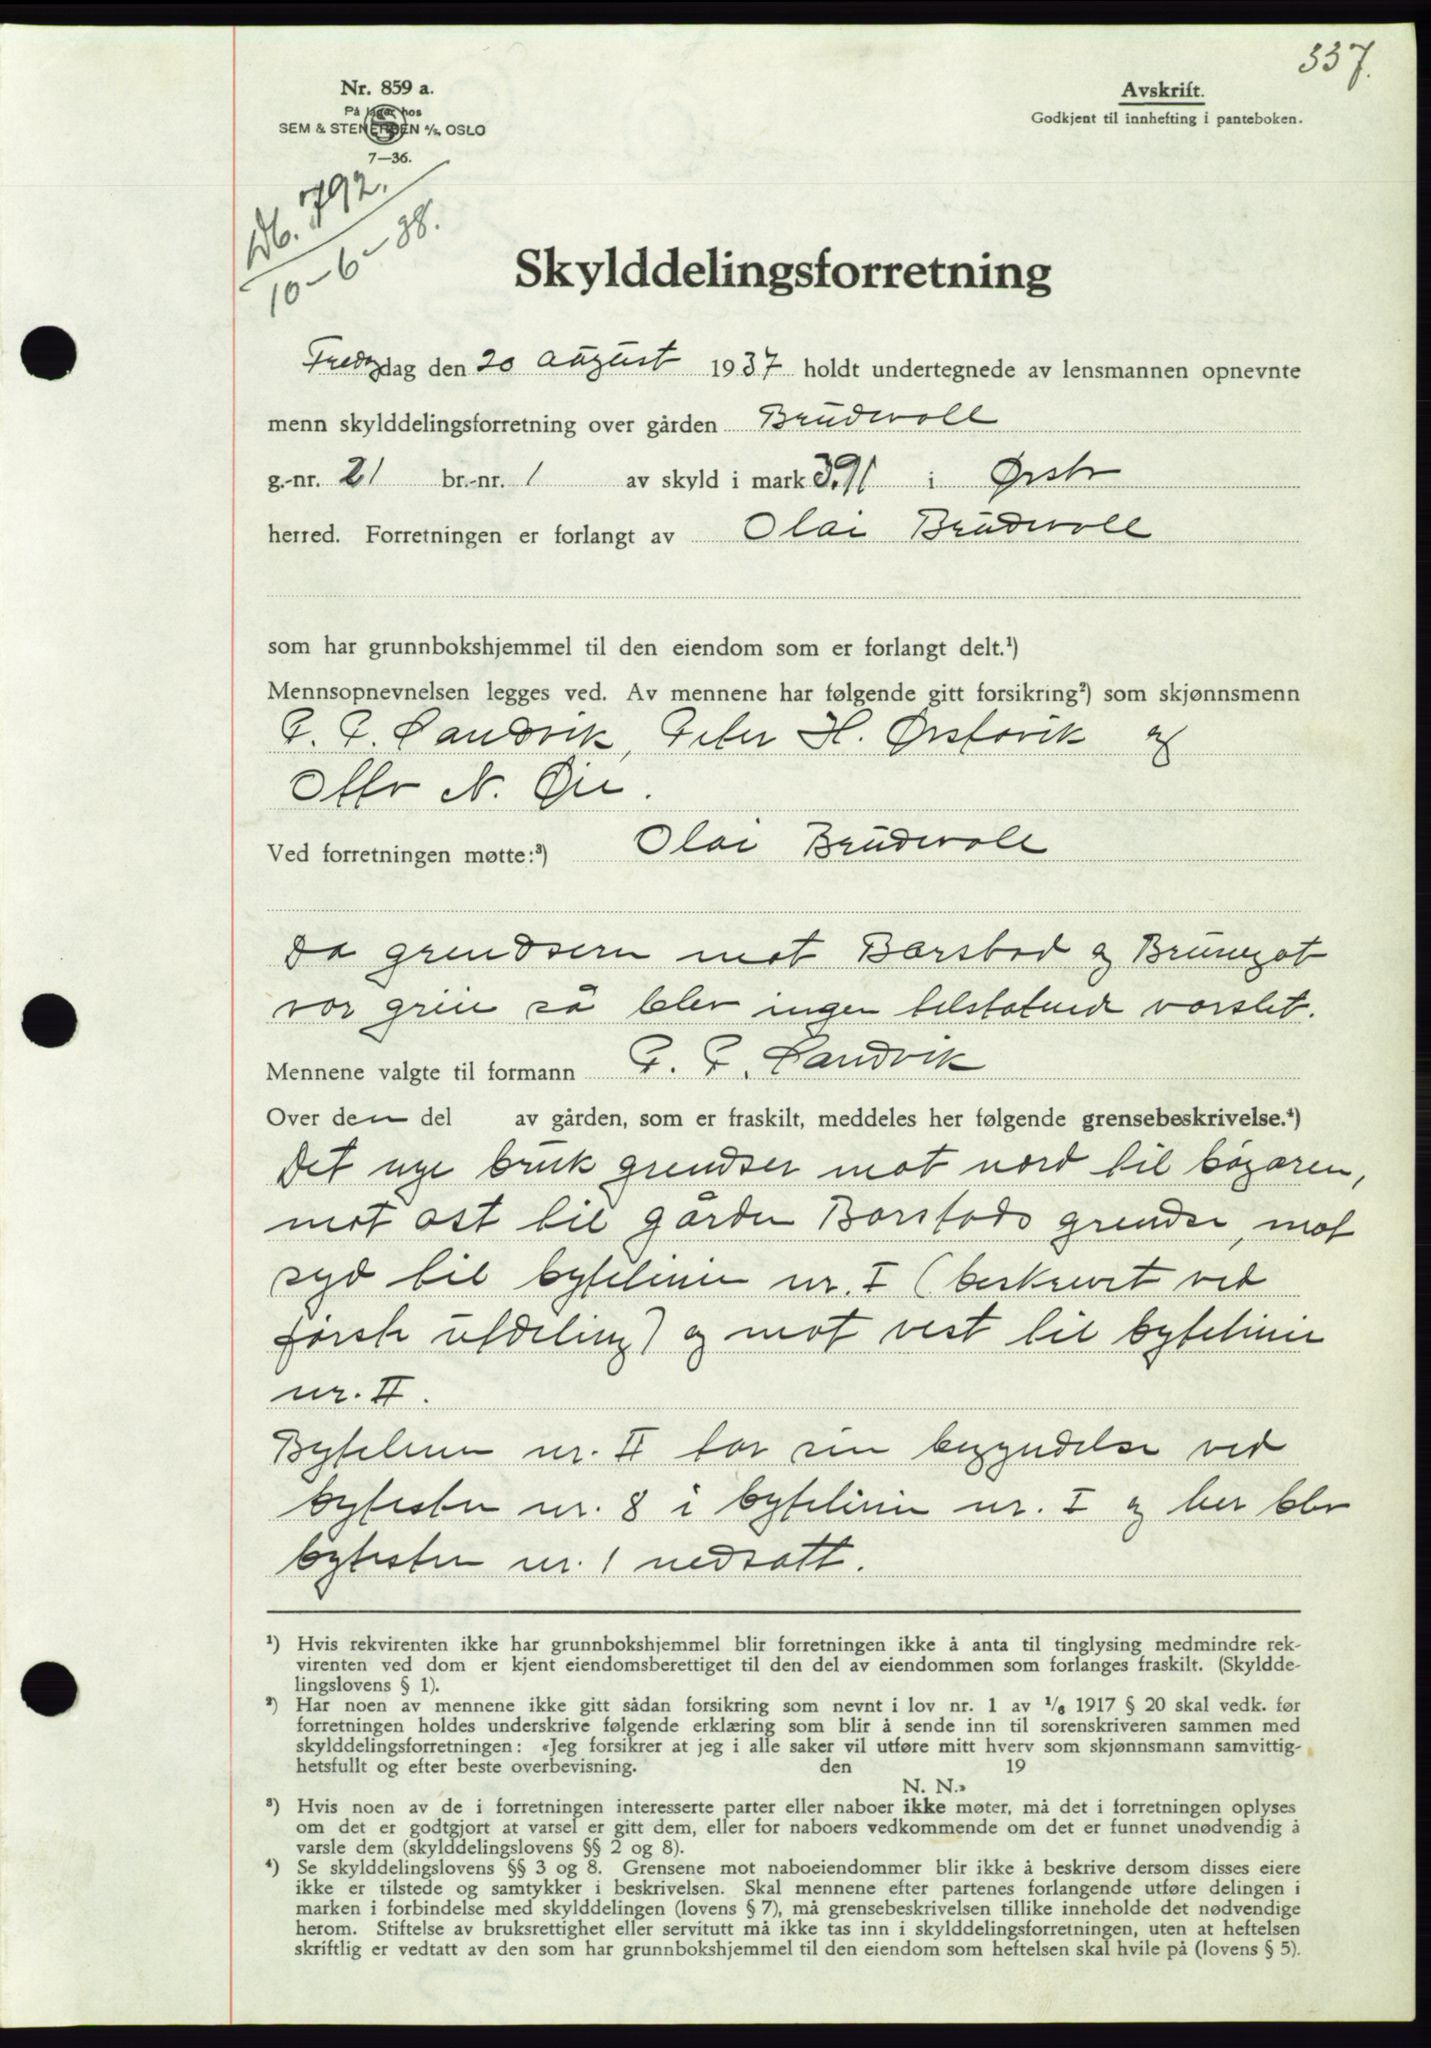 337.
Nr. 859 a.
På lager hos
SEM & STENERSEN A/S, OSLO
7—36.
Avskrift.
Godkjent til innhefting i panteboken.
Db. 792.
10-6-38.
Skylddelingsforretning
Fredag dag den 20 august 1937 holdt undertegnede av lensmannen opnevnte
menn skylddelingsforretning over gården Brudevoll
g.-nr. 21 br.-nr. 1 av skyld i mark 3.91 i Ørsta
herred. Forretningen er forlangt av Olai Brudevoll
som har grunnbokshjemmel til den eiendom som er forlangt delt.¹)
Mennsopnevnelsen legges ved. Av mennene har følgende gitt forsikring²) som skjønnsmenn
P. P. Sandvik, Peter H. Ørstavik og
Otto N. Øie.
Ved forretningen møtte:³) Olai Brudevoll
Da grendsern mot Barstad og
var grei så blev ingen tilstøtende varslet.
Mennene valgte til formann P. P. Sandvik
Over den del av gården, som er fraskilt, meddeles her følgende grensebeskrivelse.⁴)
Det nye bruk grendser mot nord til bøgaren,
mot øst til gården Barstads grendse, mot
syd til bytelinie nr. I (beskrevet ved
første utdeling) og mot vest til bytelinie
nr. II.
Bytelinie nr. II tar sin begyndelse ved
bytesten nr. 8 i bytelinie nr. I og her blev
bytesten nr. 1 nedsatt.
¹) Hvis rekvirenten ikke har grunnbokshjemmel blir forretningen ikke å anta til tinglysing medmindre rek-
virenten ved dom er kjent eiendomsberettiget til den del av eiendommen som forlanges fraskilt. (Skyldde-
lingslovens § 1).
²) Har noen av mennene ikke gitt sådan forsikring som nevnt i lov nr. 1 av ¹/₆ 1917 § 20 skal vedk. før
forretningen holdes underskrive følgende erklæring som blir å sende inn til sorenskriveren sammen med
skylddelingsforretningen: «Jeg forsikrer at jeg i alle saker vil utføre mitt hverv som skjønnsmann samvittig-
hetsfullt og efter beste overbevisning. den 19
N. N.»
³) Hvis noen av de i forretningen interesserte parter eller naboer ikke møter, må det i forretningen oplyses
om det er godtgjort at varsel er gitt dem, eller for naboers vedkommende om det er funnet unødvendig å
varsle dem (skylddelingslovens §§ 2 og 8).
⁴) Se skylddelingslovens §§ 3 og 8. Grensene mot naboeiendommer blir ikke å beskrive dersom disses eiere
ikke er tilstede og samtykker i beskrivelsen. Skal mennene efter partenes forlangende utføre delingen i
marken i forbindelse med skylddelingen (lovens § 7), må grensebeskrivelsen tillike inneholde det nødvendige
herom. Stiftelse av bruksrettighet eller servitutt må ikke tas inn i skylddelingsforretningen, uten at heftelsen
skriftlig er vedtatt av den som har grunnbokshjemmel til den eiendom som heftelsen skal hvile på (lovens § 5).